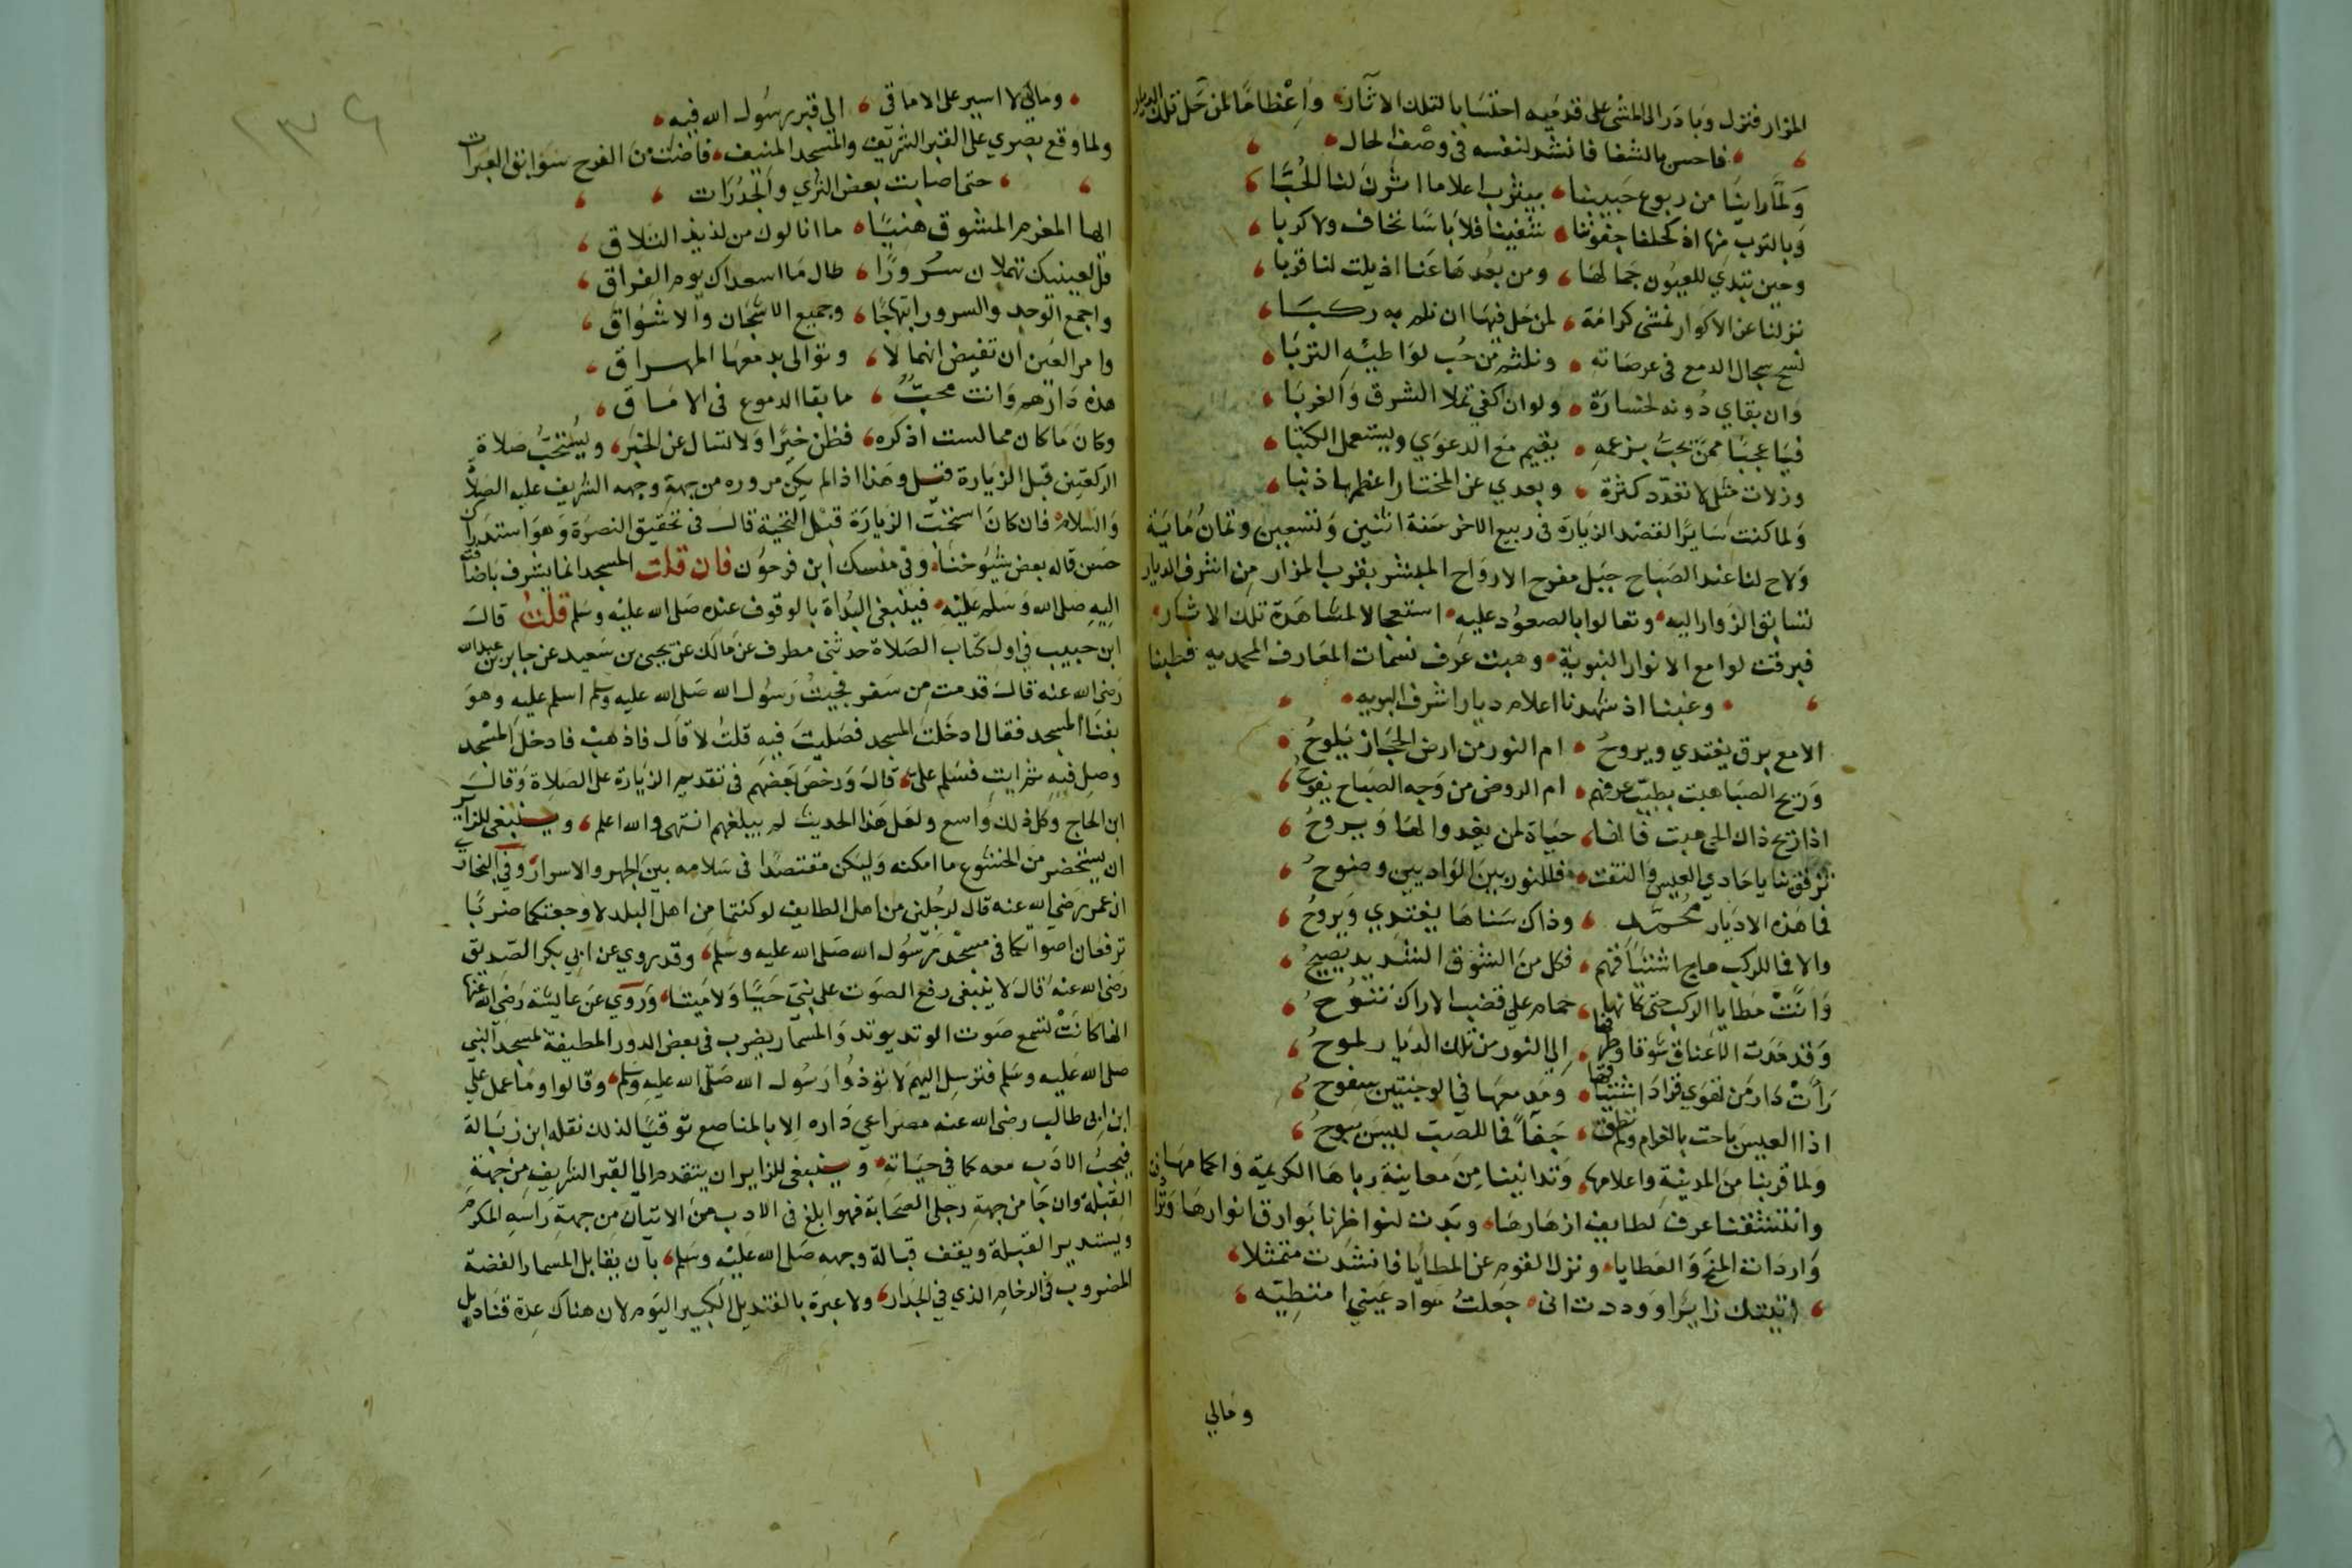 المزار فنزل وبادر الى المشي على قدميه احتسابا لتلك الاثار واعظاما لمن حل تلك الديار
فاحس بالشفا فانشد لنفسه في وصف الحال
ولما راينا من ربوع حبيبنا بيثرب اعلاما اثرن لنا الحبا
وبالترب منها اذ كحلنا جفوننا شفينا فلا باسا نخاف ولا كربا
وحين تبدي للعيون جمالها ومن بعدها عنا اذيلت لنا قربا
نزلنا عن الاكوار نمشي كرامة لمن حل فيها ان نلم به ركبا
نسح سجال الدمع في عرصاته ونلثم من حب لواطيه التربا
وان بقاي دونه لخسارة ولو ان كفي تملا الشرق والغربا
فيا عجبا ممن يحب بزعمه يقيم مع الدعوي ويستعمل الكتبا
وزلات مثلي لا تعدد كثرة وبعدي عن المختار اعظمها ذنبا
ولما كنت سايرا لقصد الزيارة في ربيع الاخر سنة اثنين وتسعين وثمان ماية
ولاح لنا عند الصباح جبل مفرح الارواح المبشر بقرب المزار من اشرف الديار
تسابق الزوار اليه وتعالوا بالصعود عليه استعجالا لمشاهدة تلك الاثار
فبرقت لوامع الانوار النبوية وهبت عرف نسمات المعارف المحمديه فطبنا
وغبنا اذ شهدنا اعلام ديار اشرف البريه
الامع برق يغتدي ويروح ام النور من ارض الحجاز يلوح
وريح الصبا هبت بطيب عرفهم ام الروض من وجه الصباح يفوح
اذا ريح ذاك الحي هبت فانها حياة لمن يغدوا لها ويروح
ترفق بنا يا حادي العيس والتفت فللنور بين الواديين وضوح
فما هذه الا ديار محمد وذاك سناها يغتدي ويروح
والا فما للركب هاج اشتياقهم فكل من الشوق الشديد يصيح
وانت مطايا الركب حتى كانها حمام على قضب الاراك تنوح
وقد مدت الاعناق شوقا وطرفها الى النور من تلك الديار لموح
رات دار من تهوي فزاد اشتياقها ومدمعها في الوجنتين سفوح
اذا العيس باحت بالغرام ولم تطق جفا فما للصب ليس يبوح
ولما قربنا من المدينة واعلامها وتدانينا من معاينة رباها الكريمة واكامها
وانتشقنا عرف لطايف ازهارها وبدت لنواظرنا بوارق انوارها
واردات المنح والعطايا ونزل القوم عن المطايا فانشدت متمثلا
اتيتك زايرا ووددت اني جعلت سواد عيني امتطيه
ومالي
ومالي لا اسير على الاماقي الى قبر رسول الله فيه
ولما وقع بصري على القبر الشريف والمسجد المنيف فاضت من الفرح سوابق العبرات
حتى اصابت بعض الثري والجدرات
ايها المغرم المشوق هنيا ما انالوك من لذيذ التلاق
قل لعينيك تهملان سرورا طال ما اسعداك يوم الفراق
واجمع الوجد والسرور ابتهاجا وجميع الاشجان والاشواق
وامر العين ان تفيض انهمالا وتوالى بدمعها المهراق
هذه دارهم وانت محب ما بقا الدموع في الاماق
وكان ما كان مما لست اذكره فظن خيرا ولا تسال عن الخبر ويستحب صلاة
الركعتين قبل الزيارة قيل وهذا اذا لم يكن مروره من جهة وجهه الشريف عليه الصلاة
والسلام فان كان استحبت الزيارة قبل التحية قال في تحقيق النصرة وهو استدراك
حسن قاله بعض شيوخنا وفي منسك ابن فرحون فان قلت المسجد انما يشرف باضافته
اليه صلى الله وسلم عليه فينبغي البداة بالوقوف عنده صلى الله عليه وسلم قلت قال
ابن حبيب في اول كتاب الصلاة حدثني مطرف عن مالك عن يحيى بن سعيد عن جابر بن عبد الله
رضي الله عنه قال قدمت من سفر فجيت رسول الله صلى الله عليه وسلم اسلم عليه وهو
بفنا المسجد فقال ادخلت المسجد فصليت فيه قلت لا قال فاذهب فادخل المسجد
وصل فيه ثم ايت فسلم علي قال ورخص بعضهم في تقديم الزيارة على الصلاة وقال
ابن الحاج وكل ذلك واسع ولعل هذا الحديث لم يبلغهم انتهى والله اعلم وينبغي للزاير
ان يستحضر من الخشوع ما امكنه وليكن مقتصدا في سلامه بين الجهر والاسرار وفي البخاري
ان عمر رضي الله عنه قال لرجلين من اهل الطايف لو كنتما من اهل البلد لاوجعتكما ضربا
ترفعان اصواتكما في مسجد رسول الله صلى الله عليه وسلم وقد روي عن ابي بكر الصديق
رضي الله عنه قال لا ينبغي رفع الصوت على نبي حيا ولا ميتا وروي عن عايشة رضي الله عنها
انها كانت تسمع صوت الوتد يوتد والمسمار يضرب في بعض الدور المطيفة لمسجد النبي
صلى الله عليه وسلم فترسل اليهم لا توذوا رسول الله صلى الله عليه وسلم وقالوا وما عمل علي
ابن ابي طالب رضي الله عنه مصراعي داره الا بالمناصع توقيا لذلك نقله ابن زبالة
فيجب الادب معه كما في حياته وينبغي للزاير ان يتقدم الى القبر الشريف من جهة
القبلة وان جا من جهة رجلى الصحابة فهو ابلغ في الادب من الاتيان من جهة راسه المكرم
ويستدبر القبلة ويقف قبالة وجهه صلى الله عليه وسلم بان يقابل المسمار الفضة
المضروب في الرخام الذي في الجدار ولا عبرة بالقنديل الكبير اليوم لان هناك عدة قناديل